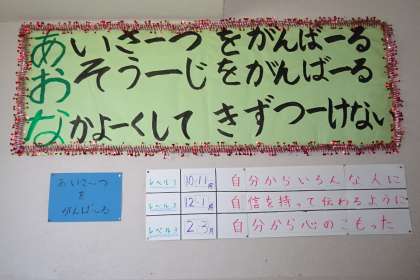 あいさーつ をがんばーる
おそうーじをがんばーる
なかよーくして きずつーけない
あいさーつ
を
がんばーる
レベル1 10.11月 自分からいろんな人に
レベル2 12.1月 自信を持って伝わるように
レベル3 2.3月 自分から心のこもった